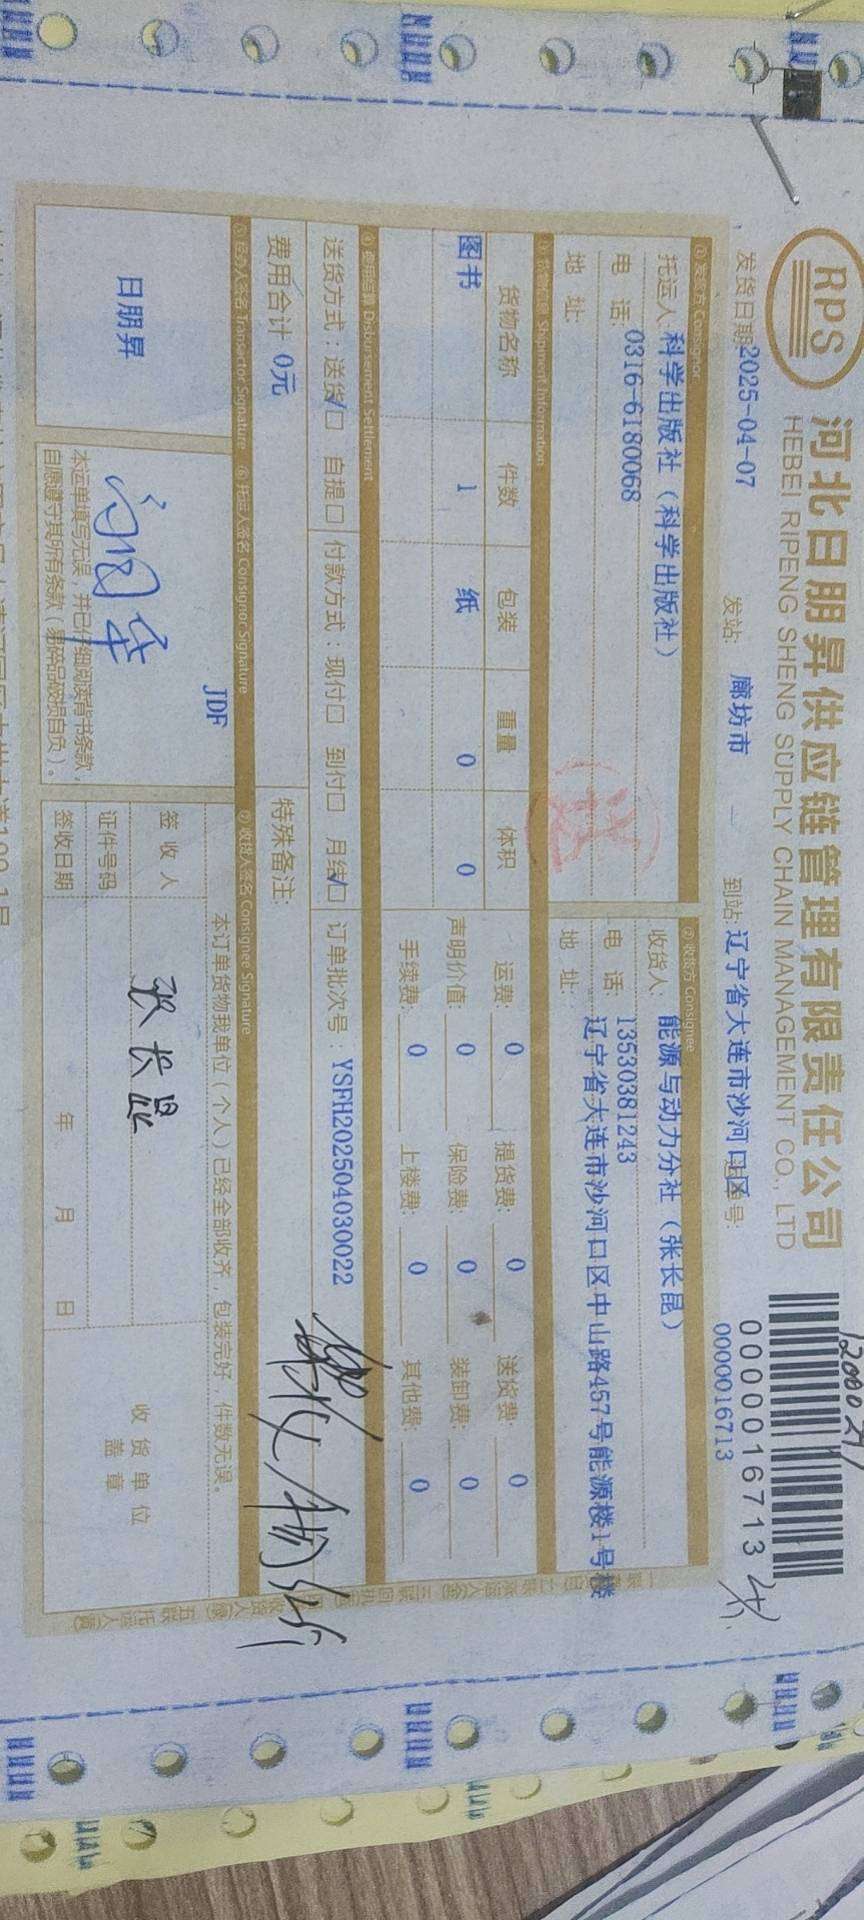 RPS
河北日朋昇供应链管理有限责任公司
HEBEI RIPENG SHENG SUPPLY CHAIN MANAGEMENT CO., LTD
0000016713
0000016713
发货日期 2025-04-07 发站: 廊坊市 到站: 辽宁省大连市沙河口区 号:
① 发货方 Consignor ② 收货方 Consignee
托运人 科学出版社（科学出版社） 收货人: 能源与动力分社（张长昆）
电 话: 0316-6180068 电 话: 13530381243
地 址: 地 址: 辽宁省大连市沙河口区中山路457号能源楼1号楼
Shipment Information
货物名称 件数 包装 重量 体积 运费: 0 提货费: 0 送货费: 0
图书 1 纸 0 0 声明价值: 0 保险费: 0 装卸费: 0
手续费: 0 上楼费: 0 其他费: 0
④ 费用结算 Disbursement Settlement
送货方式：送货√□ 自提□ 付款方式：现付□ 到付□ 月结√□ 订单批次号：YSFH202504030022
费用合计 0元 特殊备注:
⑤ 经办人签名 Transactor Signature ⑥ 托运人签名 Consignor Signature ⑦ 收货人签名 Consignee Signature
日朋昇
JDF
本运单填写无误，并已仔细阅读背书条款，
自愿遵守其所有条款（易碎品破损自负）。
本订单货物我单位（个人）已经全部收齐，包装完好，件数无误。
签 收 人 张长昆
证件号码
签收日期 年 月 日
收货单位
盖 章